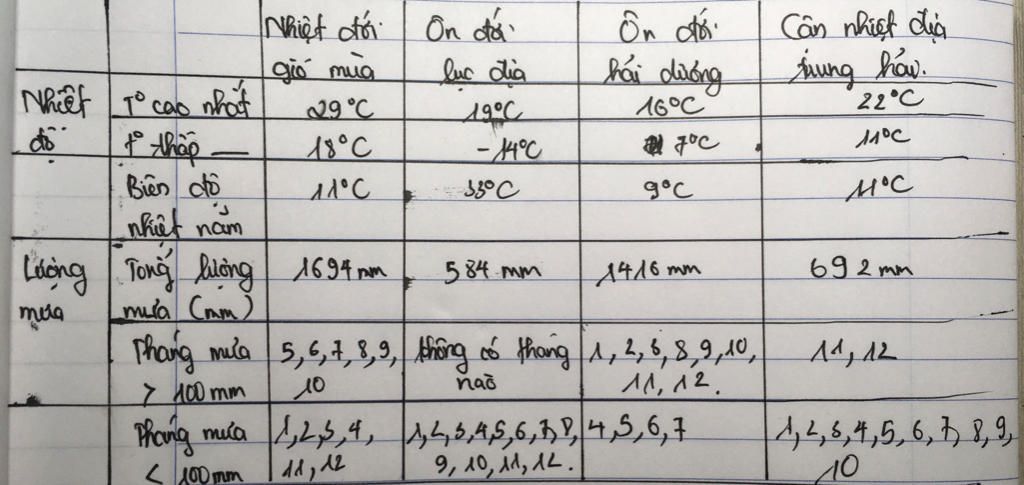 Nhiệt đới Ôn đới Ôn đới Cận nhiệt địa
gió mùa lục địa hải dương trung hải.
Nhiệt T° cao nhất 29°C 19°C 16°C 22°C
độ t° thấp — 18°C -14°C 7°C 11°C
Biên độ 11°C 33°C 9°C 11°C
nhiệt năm
Lượng Tổng lượng 1694 mm 584 mm 1416 mm 692 mm
mưa mưa (mm)
Tháng mưa 5, 6, 7, 8, 9, không có tháng 1, 2, 3, 8, 9, 10, 11, 12
> 100 mm 10 nào 11, 12.
Tháng mưa 1, 2, 3, 4, 1, 2, 3, 4, 5, 6, 7, 8, 4, 5, 6, 7 1, 2, 3, 4, 5, 6, 7, 8, 9,
< 100 mm 11, 12 9, 10, 11, 12. 10